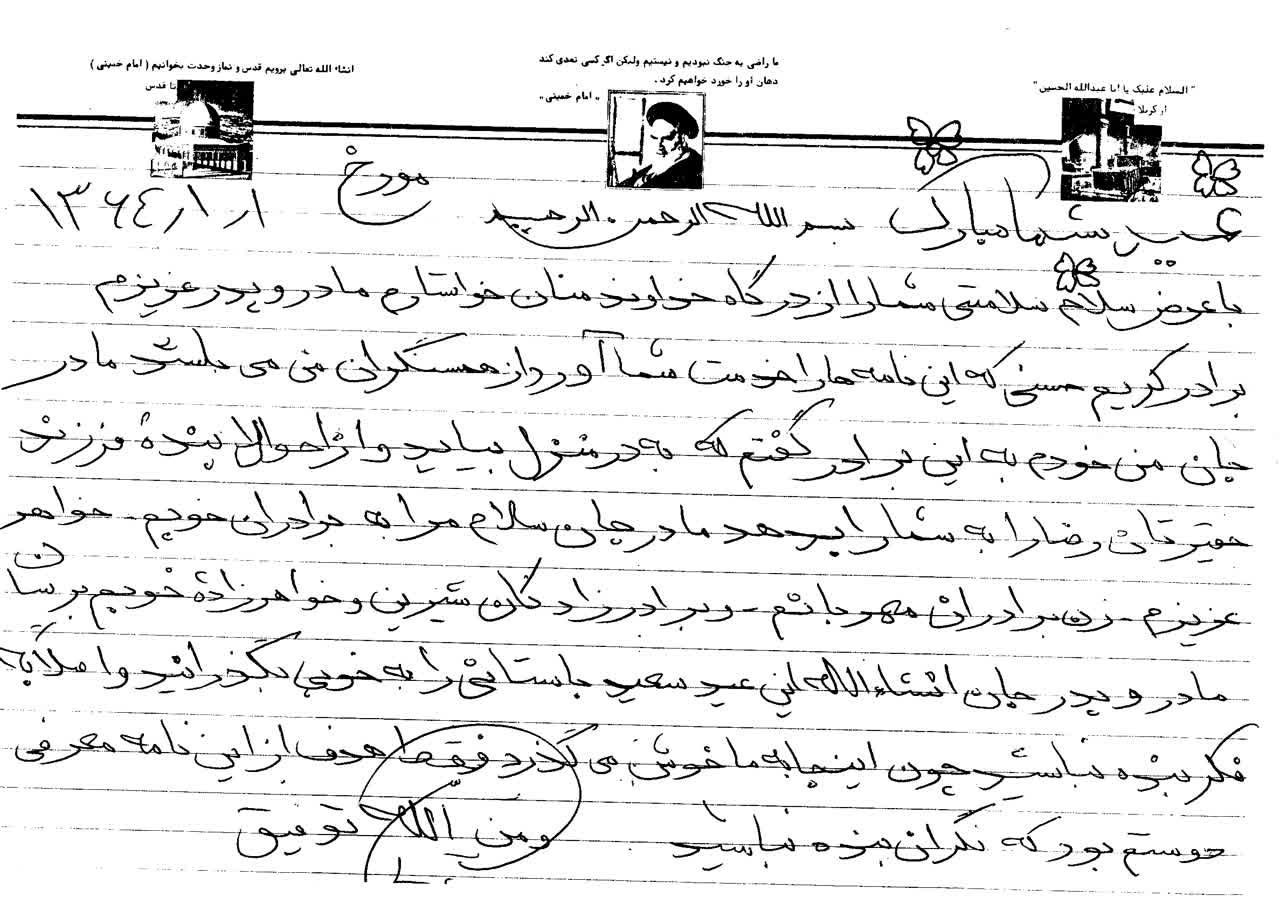 "السلام علیک یا ابا عبدالله الحسین"
از کربلا
ما راضی به جنگ نبودیم و نیستیم ولیکن اگر کسی تعدی کند
دهان او را خورد خواهیم کرد.
«امام خمینی»
انشاء الله تعالی برویم قدس و نماز وحدت بخوانیم (امام خمینی)
تا قدس
عید شما مبارک بسم الله الرحمن الرحیم مورخ ۱۳۶۴/۱/۱
با عرض سلام سلامتی شما را از درگاه خداوند منان خواستارم مادر و پدر عزیزم
برادر کریم حسنی که این نامه ها را خدمت شما آورد از همسنگران من می باشد مادر
جان من خودم به این برادر گفتم که به در منزل بیاید و از احوال بندۀ فرزند
حقیرتان رضا را به شما را بدهد مادر جان سلام مرا به برادران خوبم - خواهر
عزیزم - زن برادران مهربانم - و برادرزادگان شیرین و خواهرزادۀ خوبم برسان
مادر و پدر جان انشاءالله این عید سعید باستانی را به خوبی بگذرانید و اصلاً به
فکر بنده نباشید چون اینجا به ما خوش می گذرد فقط هدف از این نامه معرفی
دوستم بود که نگران بنده نباشید و من الله توفیق